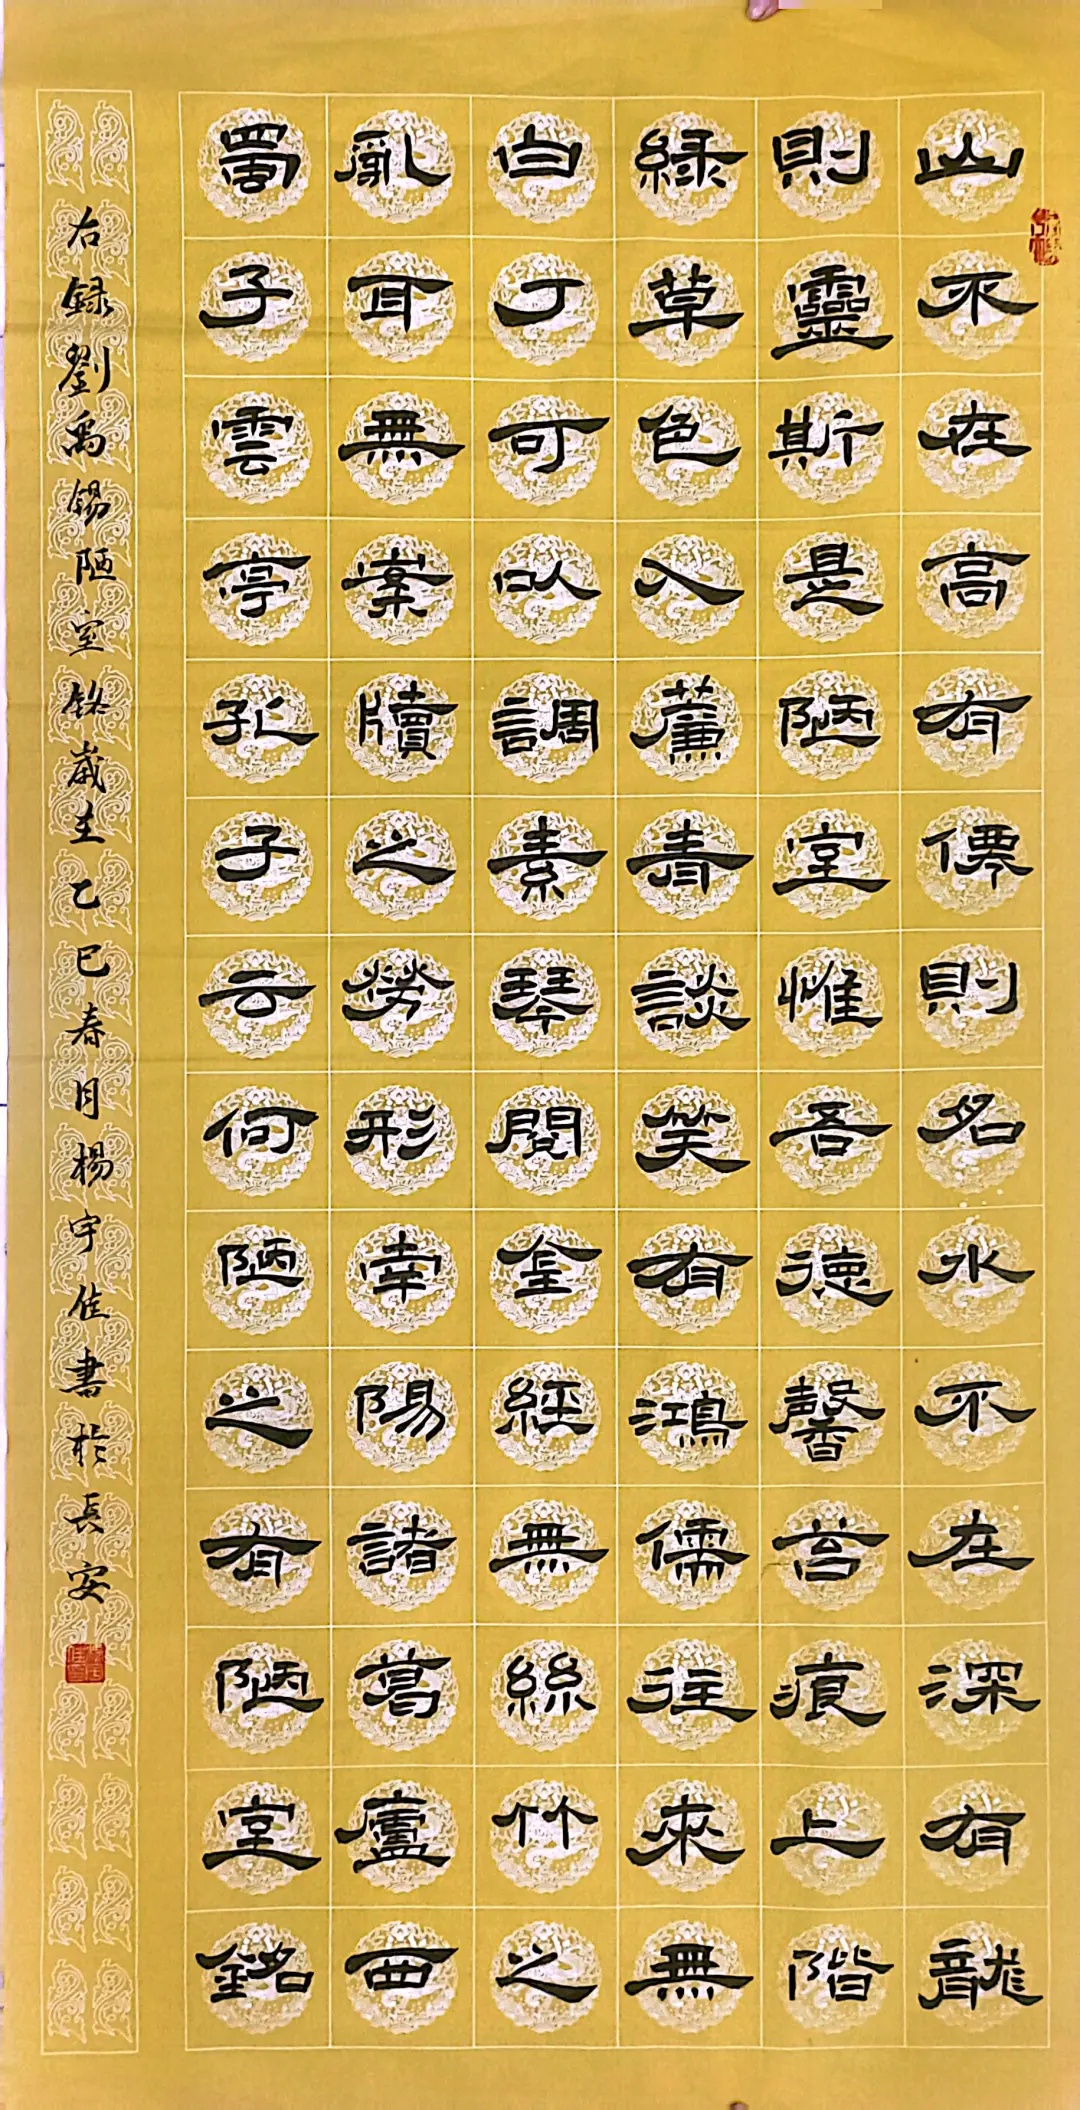 山不在高有僊則名水不在深有龍
則靈斯是陋室惟吾德馨苔痕上階
綠草色入簾青談笑有鴻儒往來無
白丁可以調素琴閱金經無絲竹之
亂耳無案牘之勞形南陽諸葛廬西
蜀子雲亭孔子云何陋之有陋室銘
右録劉禹錫陋室銘歲在乙巳春月楊宇佳書於長安